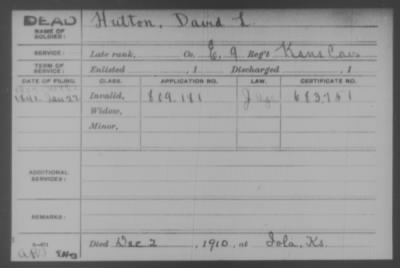 DEAD
Hutton, David L.
NAME OF
SOLDIER:
SERVICE: Late rank, Co. E, 9 Reg't Kans Cav
TERM OF
SERVICE: Enlisted , 1 Discharged , 1
DATE OF FILING. CLASS. APPLICATION NO. LAW. CERTIFICATE NO.
1891 Jan 27 Invalid, 889.181
Widow,
Minor,
ADDITIONAL
SERVICES:
REMARKS:
Died Dec 2 , 1910, at Iola, Ks.